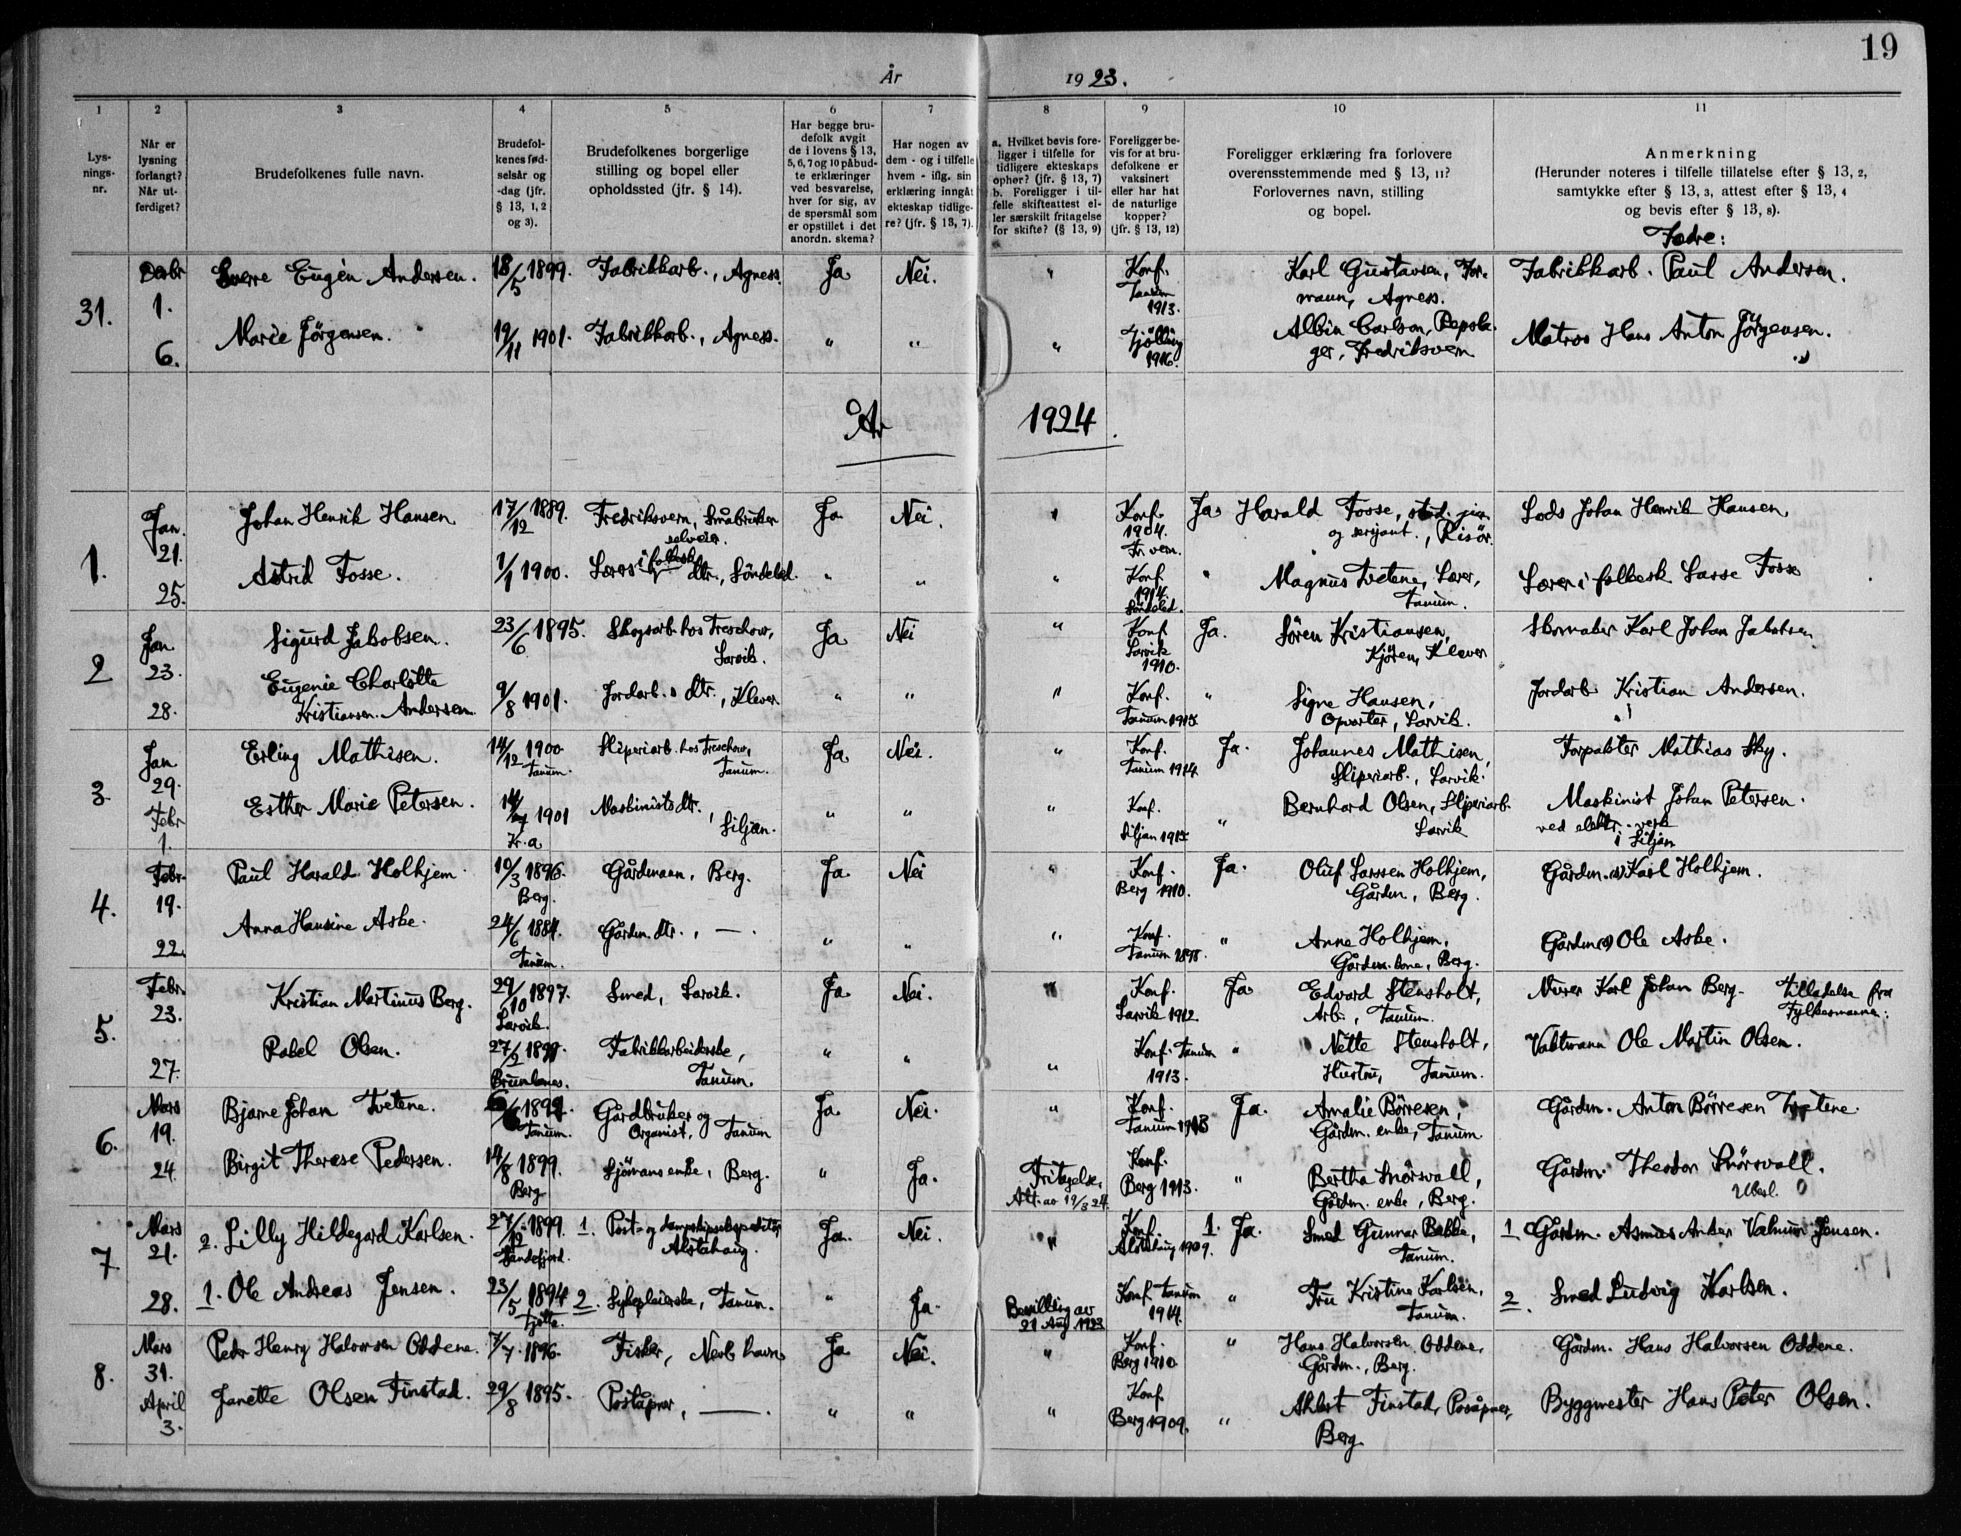 19
År 1923.
1 2 3 4 5 6 7 8 9 10 11
Lys-
nings-
nr.
Når er
lysning
forlangt?
Når ut-
ferdiget?
Brudefolkenes fulle navn.
Brudefol-
kenes fød-
selsår og
-dag (jfr.
§ 13, 1, 2
og 3).
Brudefolkenes borgerlige
stilling og bopel eller
opholdssted (jfr. § 14).
Har begge bru-
defolk avgit
de i lovens § 13,
5, 6, 7 og 10 påbud-
te erklæringer
ved besvarelse,
hver for sig, av
de spørsmål som
er opstillet i det
anordn. skema?
Har nogen av
dem - og i tilfelle
hvem - iflg. sin
erklæring inngåt
ekteskap tidlige-
re? (jfr. § 13, 7).
a. Hvilket bevis fore-
ligger i tilfelle for
tidligere ekteskaps
ophør? (jfr. § 13, 7)
b. Foreligger i til-
felle skifteattest el-
ler særskilt fritagelse
for skifte? (§ 13, 9)
Foreligger be-
vis for at bru-
defolkene er
vaksinert
eller har hat
de naturlige
kopper?
(jfr. § 13, 12)
Foreligger erklæring fra forlovere
overensstemmende med § 13, 11?
Forlovernes navn, stilling
og bopel.
Anmerkning
(Herunder noteres i tilfelle tillatelse efter § 13, 2,
samtykke efter § 13, 3, attest efter § 13, 4
og bevis efter § 13, 8).
Fædre:
31.
Desbr
1.
6.
Sverre Eugén Andersen. 18/5 1899. Fabrikkarb., Agness. Ja Nei. "
Konf.
Tanum
1913.
Karl Gustavsen, For-
mann, Agness.
Fabrikkarb. Paul Andersen.
Marie Jörgensen. 19/11 1901. Fabrikkarb., Agness. " " "
Tjölling
1916.
Albin Carlson, Repsla-
ger, Fredriksvern
Matros Hans Anton Jörgensen.
År 1924.
1.
Jan.
21.
25.
Johan Henrik Hansen 17/12 1889. Fredriksvern, Småbruker
selveier.
Ja Nei. "
Konf.
1904.
Fr.vern.
Ja. Harald Fosse, stud. jur.
og serjant., Risør.
Lods Johan Henrik Hansen.
Astrid Fosse. 1/1 1900. Lærers i folkesk. dtr., Söndeled. " " "
Konf.
1914.
Söndeled.
" Magnus Tvetene, Lærer,
Tanum.
Lærer i folkesk Lasse Fosse
2
Jan.
23.
28.
Sigurd Jakobsen. 23/6 1895. Skogsarb. hos Treschow,
Larvik.
Ja Nei "
Konf
Larvik
1910.
Ja. Sören Kristiansen,
Kjören, Klever
Skomaker Karl Johan Jakobsen
Eugenie Charlotte
Kristiansen. Andersen. 9/8 1901. Jordarb.s dtr., Klever " " "
Konf.
Tanum 1915
" Signe Hansen,
Opvarter, Larvik.
Jordarb. Kristian Andersen.
3.
Jan
29.
Febr
1.
Erling Mathisen. 14/12 1900
Tanum.
Sliperiarb. hos Treschow,
Tanum.
Ja Nei. "
Konf.
Tanum 1914
Ja. Johannes Mathisen,
Sliperiarb., Larvik.
Forpakter Mathias Sky.
Esther Marie Petersen. 1901
Kr.a
Maskinists dtr.,
Siljan.
" " "
Konf.
Siljan 1915
" Bernhard Olsen, Sliperiarb.
Larvik
Maskinist Johan Petersen.
ved elektr. verk
i Siljan
4.
Febr.
19.
22.
Paul Harald Holhjem. 10/3 1896.
Berg.
Gårdmann, Berg. Ja Nei "
Konf.
Berg 1910.
Ja. Oluf Larssen Holhjem,
Gårdm, Berg.
Gårdm. Karl Holhjem.
Anna Hansine Aske. 24/6 1884.
Tanum.
Gårdm. dtr., — . " " "
Konf.
Tanum 1898.
" Anne Holhjem,
Gårdm. kone, Berg.
Gårdm Ole Aske.
5.
Febr.
23.
27.
Kristian Martinus Berg. 29/10 1897.
Larvik.
Smed, Larvik. Ja Nei. "
Konf.
Larvik 1912.
Ja Edvard Stensholt,
Arb., Tanum.
Murer Karl Johan Berg. Tilladelse fra
Fylkesmannen.
Rakel Olsen.
Brunlanes.
Fabrikkarbeiderske,
Tanum.
" " "
Konf. Tanum
1913.
" Nette Stensholt,
Hustru, Tanum.
Vaktmann Ole Martin Olsen.
6.
Mars
19.
24.
Bjarne Johan Tvetene.
Tanum.
Gårdbruker og
Organist, Tanum
Ja. Nei. "
Konf.
Tanum 1913
Ja. Amalie Börresen,
Gårdm. enke, Tanum.
Gårdm. Anton Börresen Tvetene.
Birgit Therese Pedersen. 14/8 1899.
Berg
Sjömans enke, Berg. " Ja.
Fritagelse,
Att. av 19/3 24.
Konf.
Berg 1913.
" Bertha Snörsvall,
Gårdm. enke, Berg.
Gårdm. Theodor Snörsvall.
7
Mars
21.
28.
2. Lilly Hildegard Karlsen. 27/12 1899.
Sandefjord.
1. Post- og dampskipsekspeditör,
Alstahaug.
Ja. Nei. "
Konf
Alstahaug 1909.
1. Ja. Smed Gunnar Bakke,
Tanum.
1 Gårdm. Asmus Anker Valmur Jensen.
1. Ole Andreas Jensen. 23/5 1894
Tjøtta.
2. Sykepleierske, Tanum. " Ja.
Bevilling av
21 Aug 1923
Konf. Tanum
1914.
" Fru Kristine Karlsen,
Tanum.
2 Smed Ludvig Karlsen.
8.
Mars
31.
April
3.
Peder Henry Halvorsen Oddene. 7/7. 1896. Fisker, Nevlunghavn Ja Nei. "
Konf.
Berg 1910
" Hans Halvorsen Oddene,
Gårdm., Berg.
Gårdm. Hans Halvorsen Oddene.
Janette Olsen Finstad. 29/8 1895. Poståpner, — . " " "
Konf
Berg 1909.
" Albert Finstad, Poståpner,
Berg.
Byggmester Hans Peter Olsen.